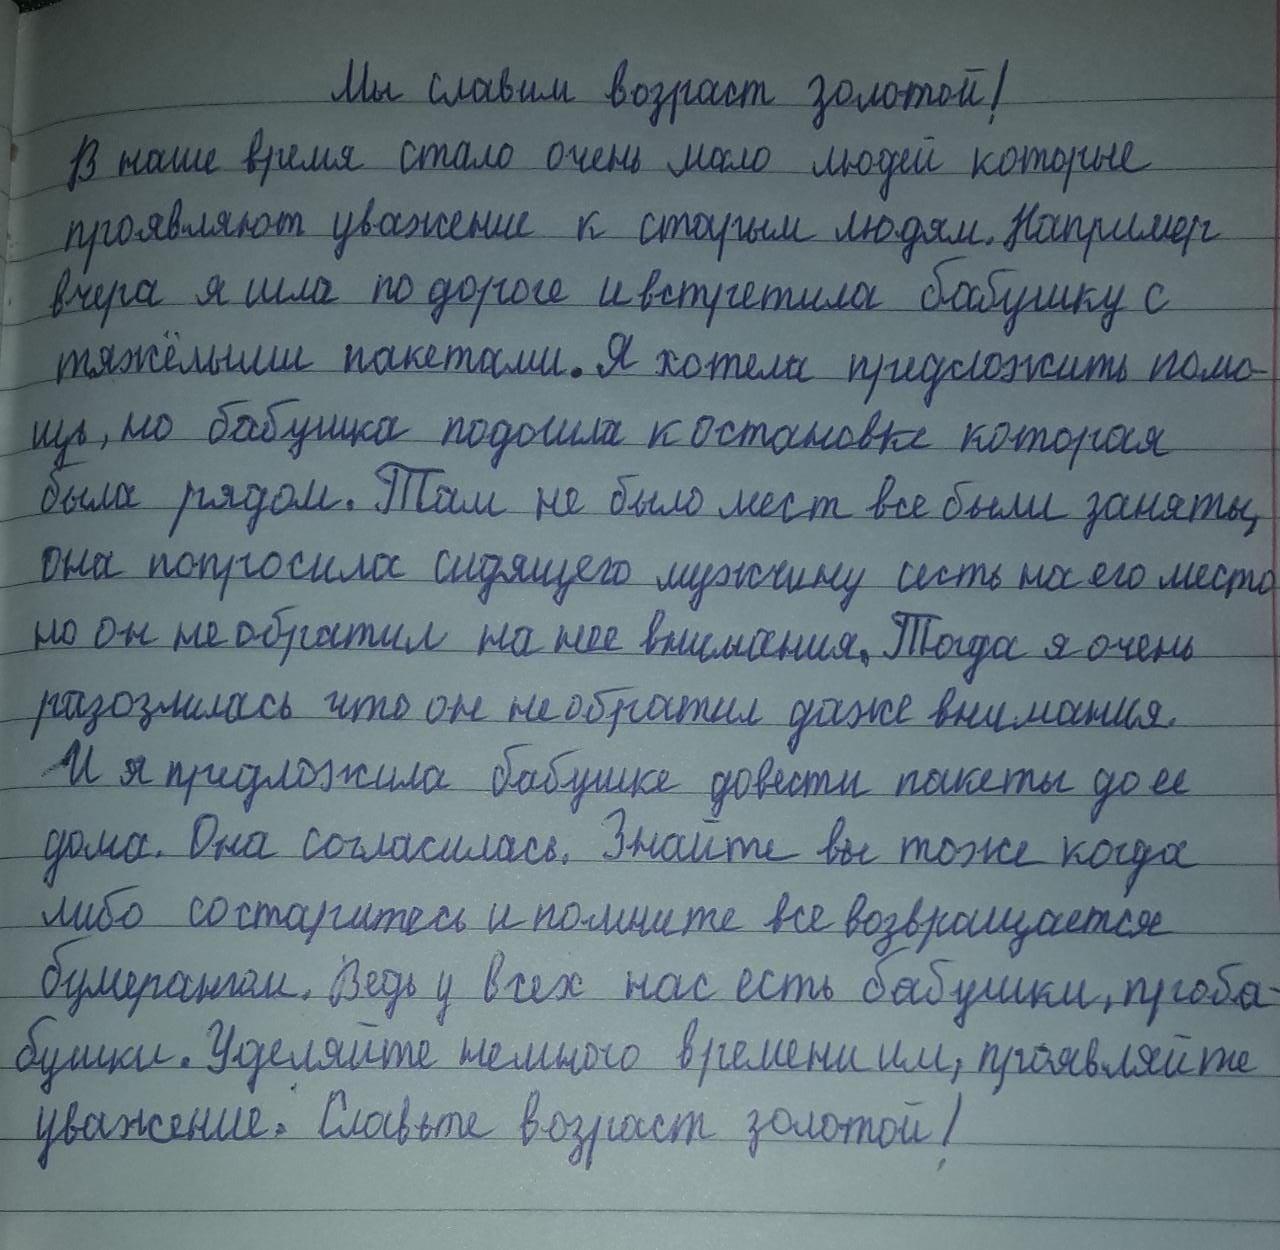 Мы славим возраст золотой!
В наше время стало очень мало людей которые
проявляют уважение к старым людям. Например
вчера я шла по дороге и встретила бабушку с
тяжёлыми пакетами. Я хотела предложить помо-
щь, но бабушка подошла к остановке которая
была рядом. Там не было мест все были заняты,
она попросила сидящего мужчину сесть на его место
но он не обратил на нее внимания. Тогда я очень
разозлилась что он не обратил даже внимания.
И я предложила бабушке довести пакеты до ее
дома. Она согласилась. Знайте вы тоже когда
либо состаритесь и помните все возвращается
бумерангом. Ведь у всех нас есть бабушки, проба-
бушки. Уделяйте немного времени им, проявляйте
уважение. Славьте возраст золотой!